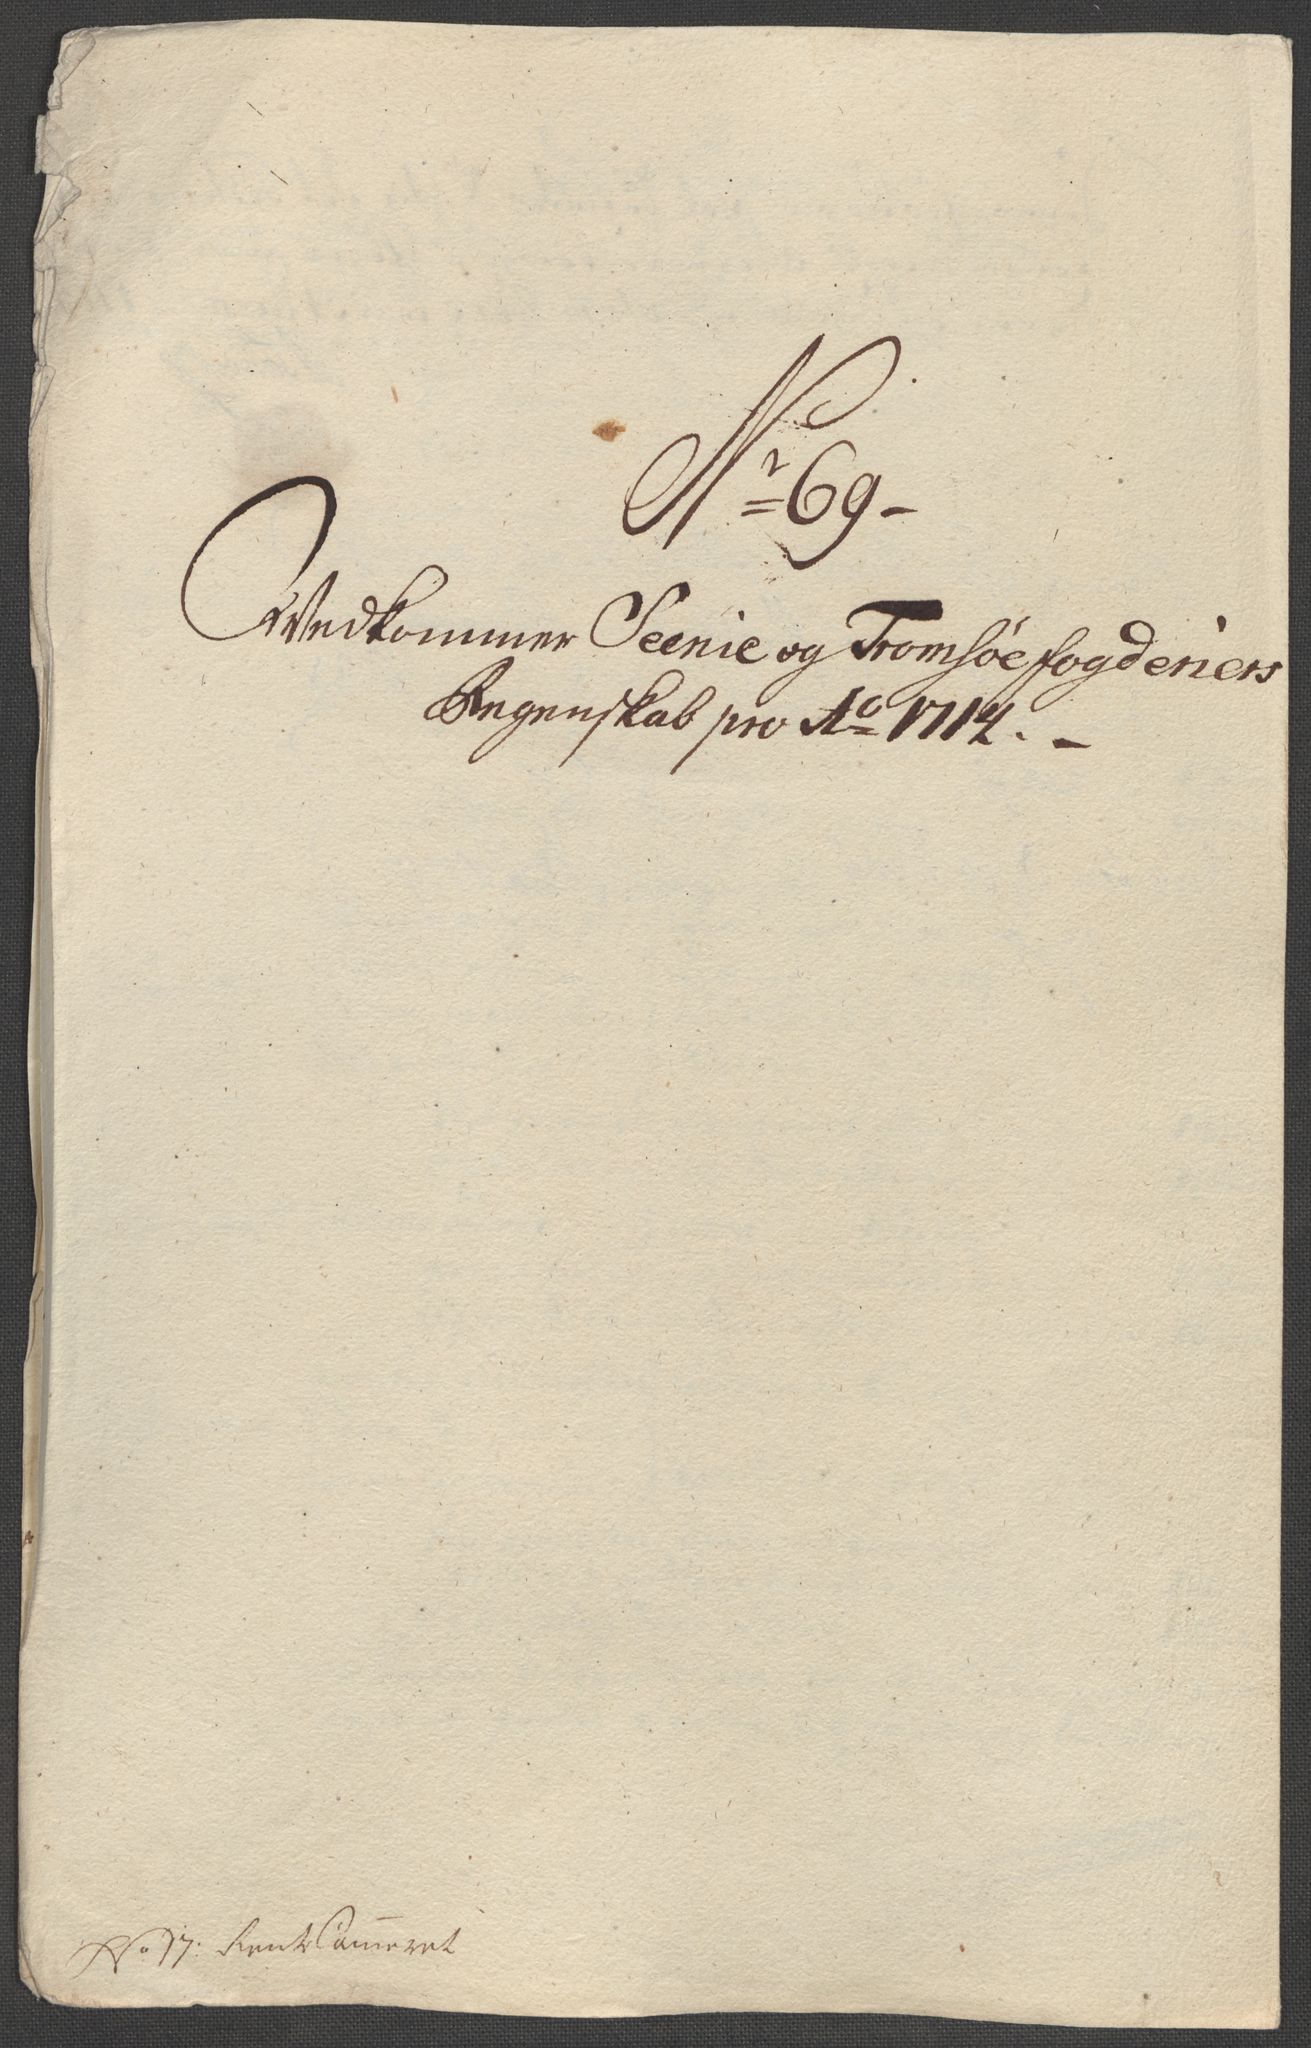 Nr 69-
Vedkommer Seenie og Tromsøe fogderiers
Regenskab pro Ao 1714. -
No 17: RentCammeret